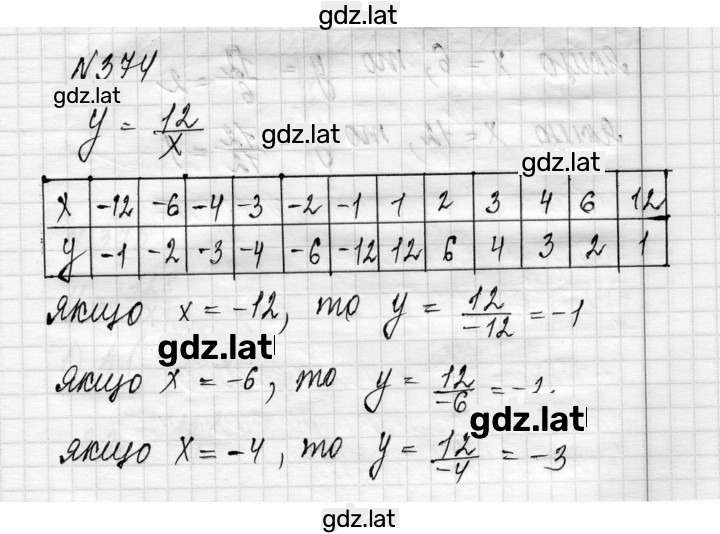 gdz.lat
№374
gdz.lat
y = 12/x
gdz.lat
gdz.lat
x -12 -6 -4 -3 -2 -1 1 2 3 4 6 12
y -1 -2 -3 -4 -6 -12 12 6 4 3 2 1
якщо x = -12, то y = 12/-12 = -1
gdz.lat
якщо x = -6, то y = 12/-6 =
gdz.lat
якщо x = -4, то y = 12/-4 = -3
gdz.lat